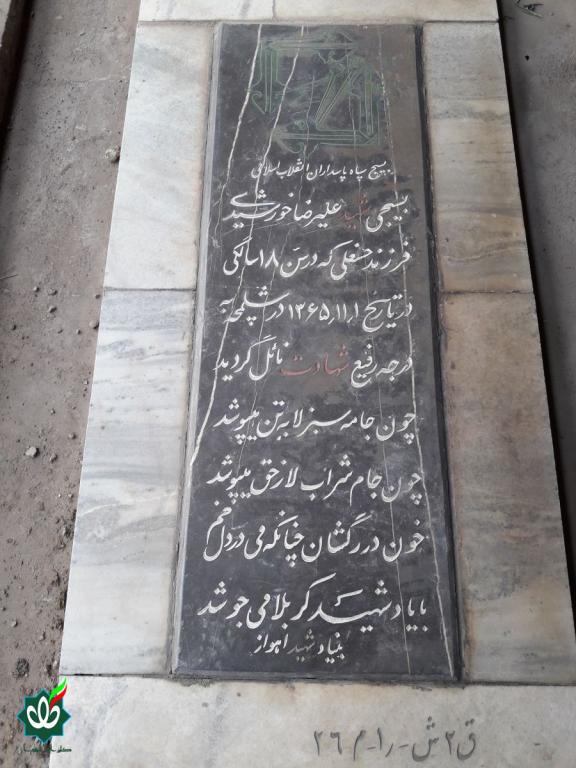 بسیج سپاه پاسداران انقلاب اسلامی
بسیجی شهید علیرضا خورشیدی
فرزند حسنعلی که در سن ۱۸ سالگی
در تاریخ ۱۳۶۵٫۱۱٫۱ در شلمچه به
درجه رفیع شهادت نائل گردید
چون جامه سبز لا به تن میپوشد
چون جام شراب لا ز حق مینوشد
خون در رگشان چنانکه می در دل خم
با یاد شهید کربلا می جوشد
بنیاد شهید اهواز
ق ۲ ش - ر ۱ - م ۲۶